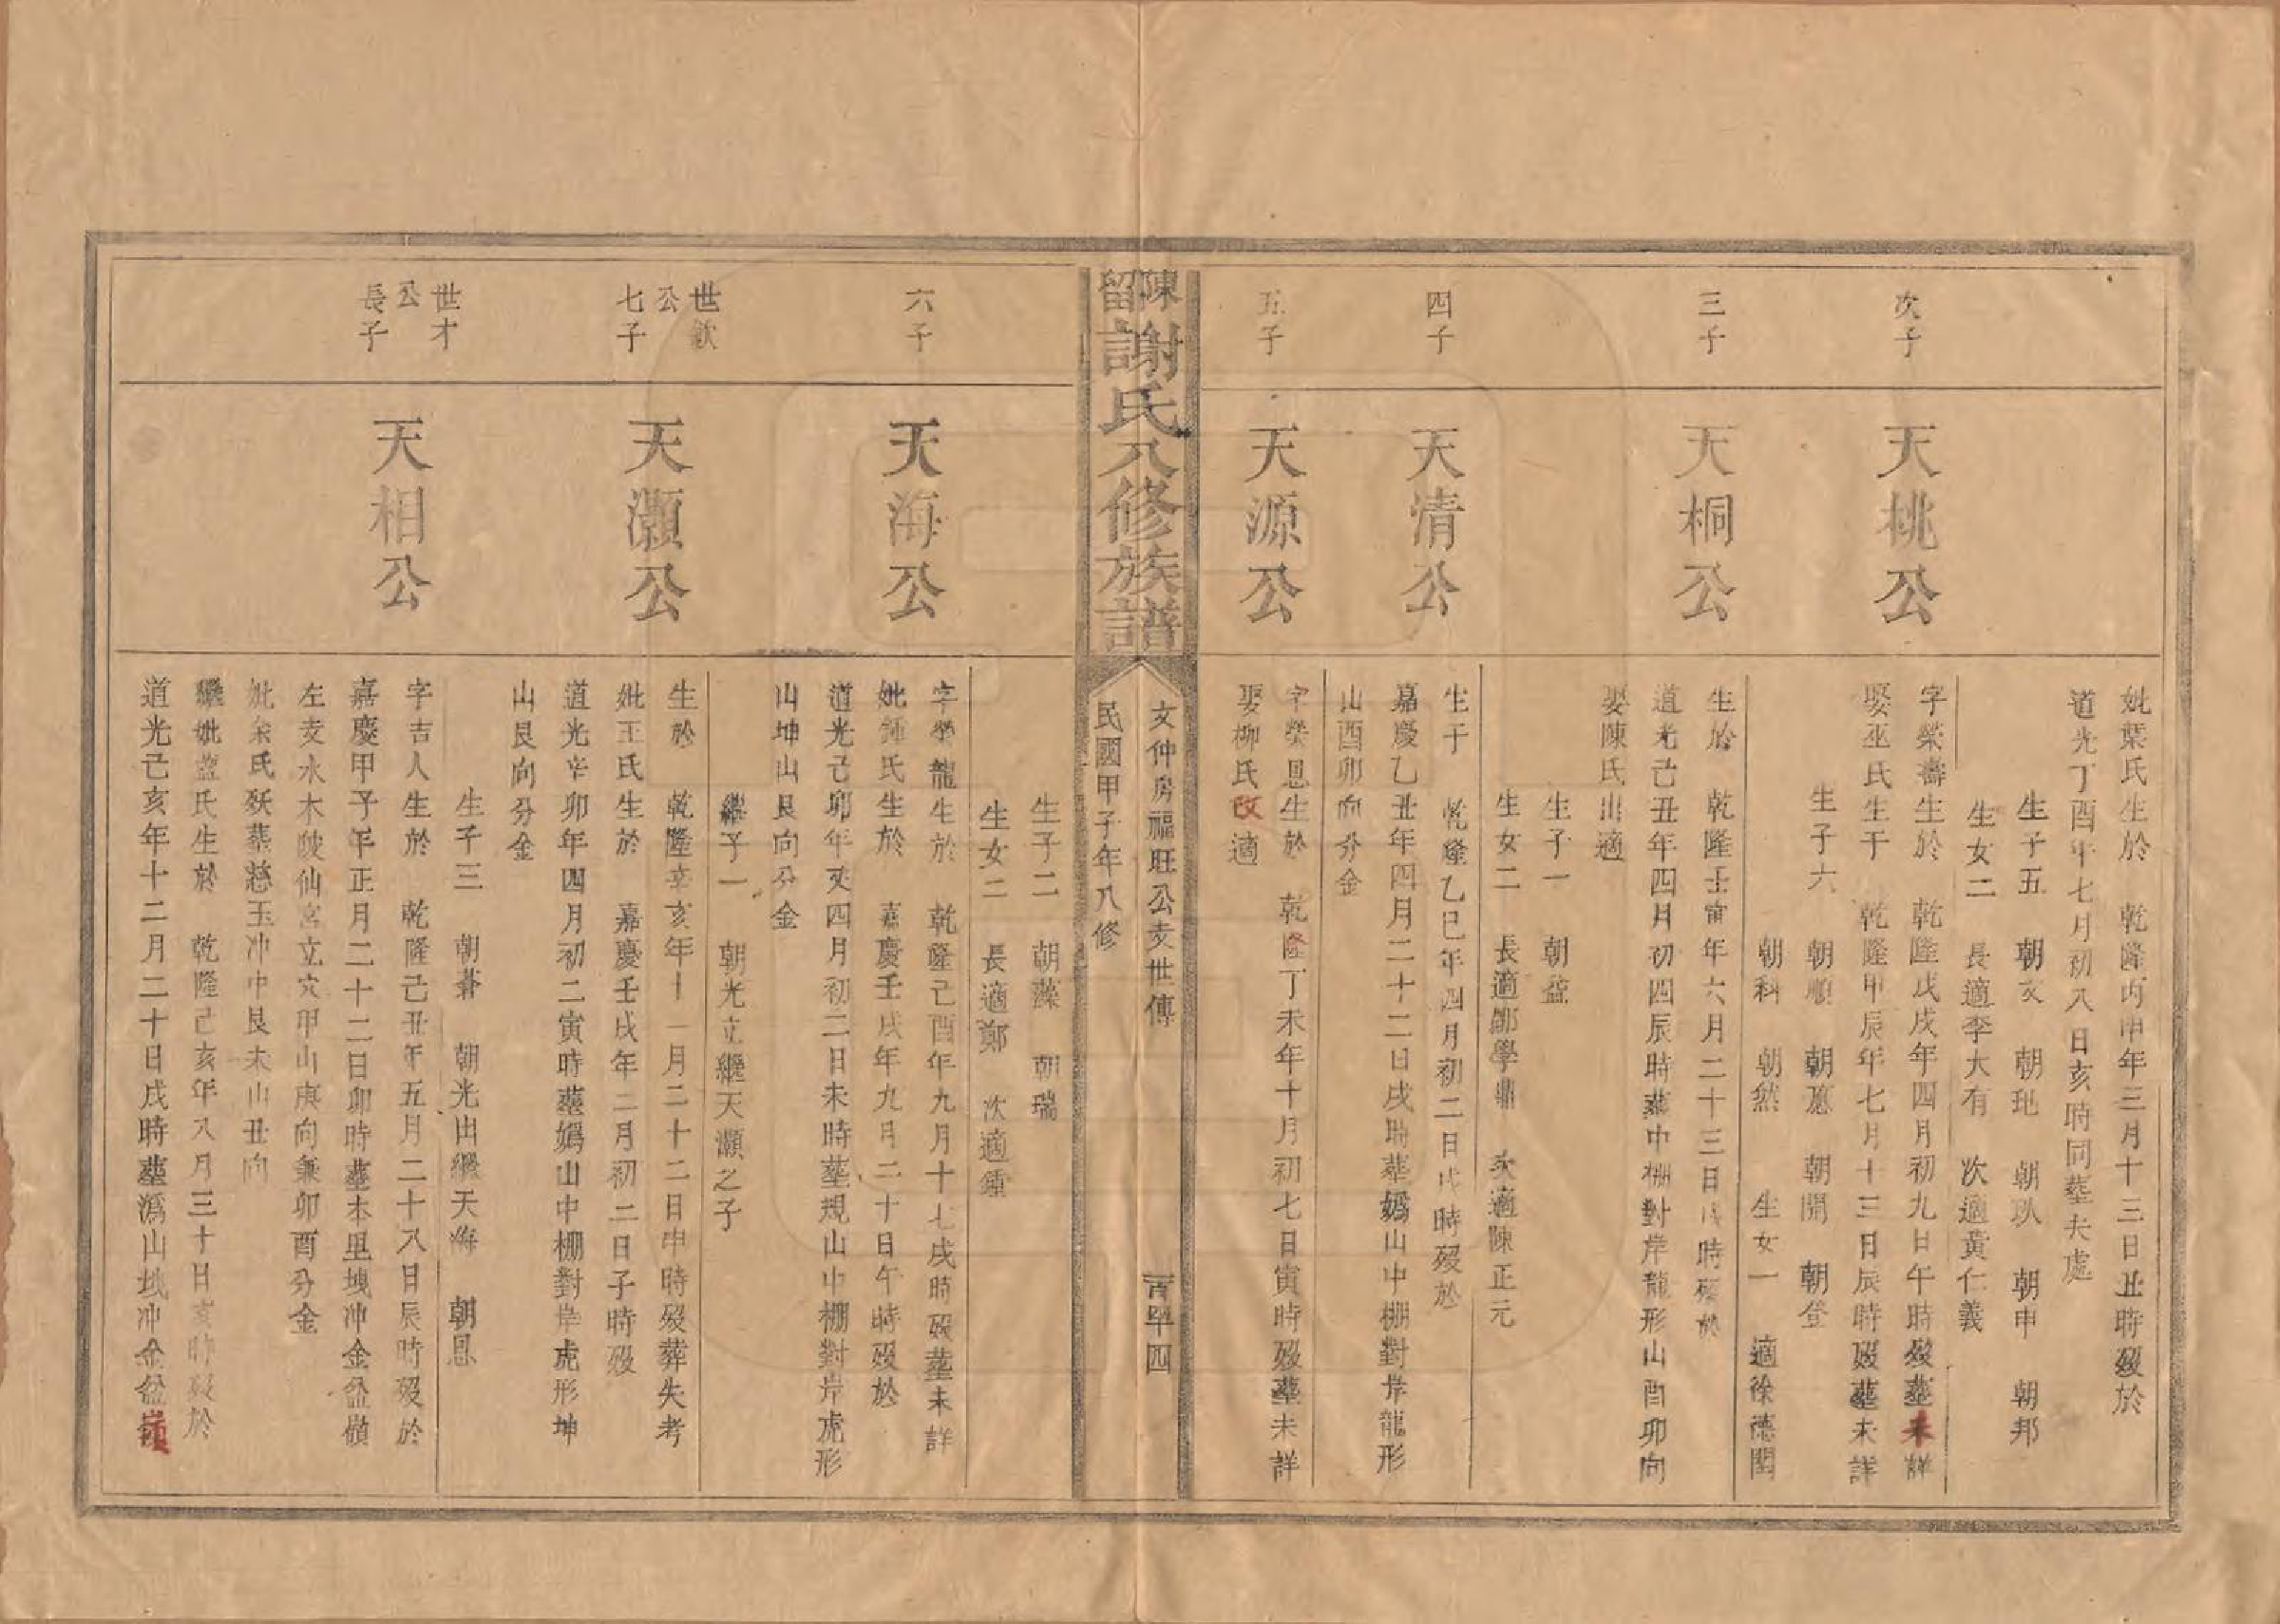 妣葉氏生於　乾隆丙申年三月十三日丑時歿於
道光丁酉年七月初八日亥時同塟夫處
生子五　朝　朝玭　朝　朝申　朝邦
生女二　長適李大有　次適黃仁義
次子
天桃公
字榮壽生於　乾隆戊戌年四月初九日午時歿塟未詳
娶巫氏生于　乾隆甲辰年七月十三日辰時歿塟未詳
生子六　朝順　朝　朝開　朝登
朝科　朝然　生女一　適徐德閏
三子
天桐公
生於　乾隆壬寅年六月二十三日戌時歿於
道光己丑年四月初四辰時塟中棚對岸龍形山酉卯向
娶陳氏出適
生子一　朝益
生女二　長適鄒學鼎　次適陳正元
四子
天清公
生于　乾隆乙巳年四月初二日戌時歿於
嘉慶乙丑年四月二十二日戌時塟嬀山中棚對岸龍形
山酉卯向分金
五子
天源公
字榮恩生於　乾隆丁未年十月初七日寅時歿塟未詳
娶柳氏改適
陳留謝氏八修族譜
文仲房福旺公支世傳
百單四
民國甲子年八修
生子二　朝藻　朝瑞
生女二　長適鄭　次適鍾
六子
天海公
字榮龍生於　乾隆己酉年九月十七戌時歿塟未詳
妣鍾氏生於　嘉慶壬戌年九月二十日午時歿於
道光己卯年又四月初二日未時塟規山中棚對岸虎形
山坤山艮向分金
繼子一　朝光立繼天灝之子
世欽公七子
天灝公
生於　乾隆辛亥年十一月二十二日申時歿葬失考
妣王氏生於　嘉慶壬戌年二月初二日子時歿
道光辛卯年四月初二寅時塟嬀山中棚對岸虎形坤
山艮向分金
生子三　朝蒼　朝光出繼天海　朝恩
世才公長子
天相公
字吉人生於　乾隆己丑年五月二十八日辰時歿於
嘉慶甲子年正月二十二日卯時塟本里塊冲金盆嶺
左支水木陂仙宮立穴甲山庚向兼卯酉分金
妣余氏歿塟慈玉冲中艮未山丑向
繼妣藍氏生於　乾隆己亥年八月三十日亥時歿於
道光己亥年十二月二十日戌時塟潙山塊冲金盆嶺